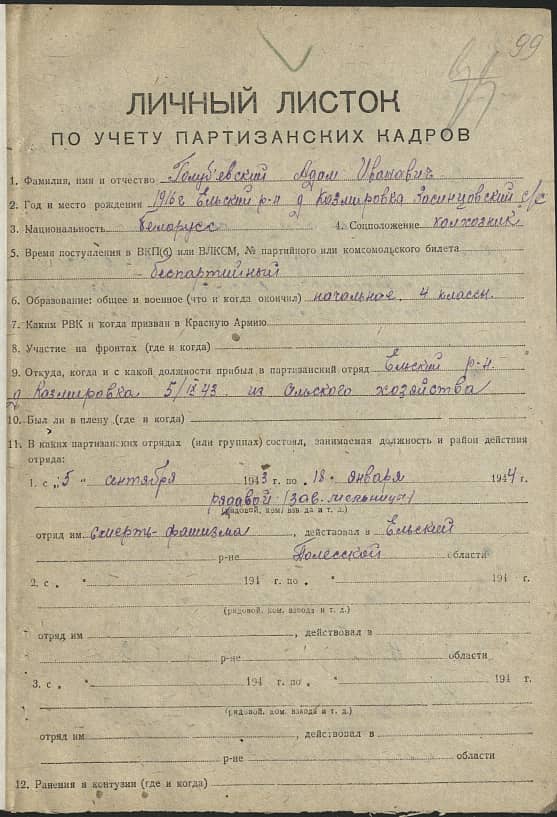 99
ЛИЧНЫЙ ЛИСТОК
ПО УЧЕТУ ПАРТИЗАНСКИХ КАДРОВ
1. Фамилия, имя и отчество Голубевский Адам Иванавич
2. Год и место рождения 1916г Ельский р-н д Казмировка Засинцовский с/с
3. Национальность беларусс 4. Соцположение колхозник
5. Время поступления в ВКП(б) или ВЛКСМ, № партийного или комсомольского билета
беспартийный
6. Образование: общее и военное (что и когда окончил) начальное, 4 классы
7. Каким РВК и когда призван в Красную Армию
8. Участие на фронтах (где и когда)
9. Откуда, когда и с какой должности прибыл в партизанский отряд Ельский р-н.
д Казмировка 5/IX 43 из сльского хозяйства
10. Был ли в плену (где и когда)
11. В каких партизанских отрядах (или группах) состоял, занимаемая должность и район действия
отряда:
1. с „5" сентября 1943 г. по „18" января 1944 г.
рядавой (зав. мельницы)
(рядовой, ком. взвода и т. д.)
отряд им Смерть-фашизма, действовал в Ельский
р-не Полесской области
2. с „ " 194 г. по „ " 194 г.
(рядовой, ком. взвода и т. д.)
отряд им , действовал в
р-не области
3. с „ " 194 г. по „ " 194 г.
(рядовой, ком. взвода и т. д.)
отряд им , действовал в
р-не области
12. Ранения и контузии (где и когда)